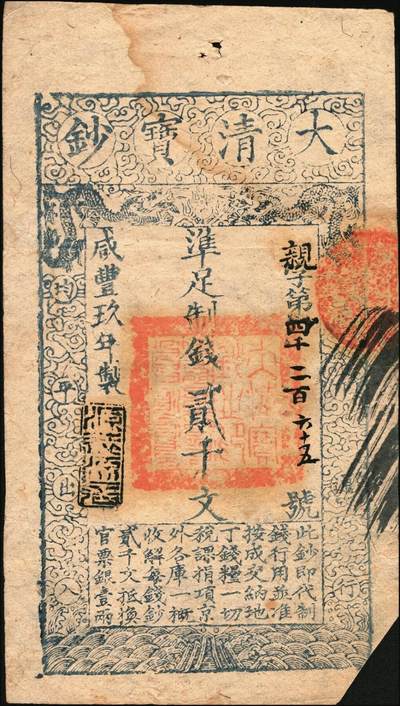 大清寶鈔
行
親字第四千二百六十五號
準足制錢貳千文
咸豐玖年製
均平出入
此鈔即代制
錢行用並准
按成交納地
丁錢糧一切
稅課捐項京
外各庫一概
收解每錢鈔
貳千文抵換
官票銀壹兩